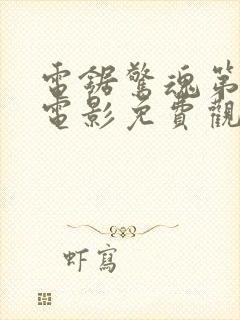 電鋸驚魂第
電影免費觀
虾寫